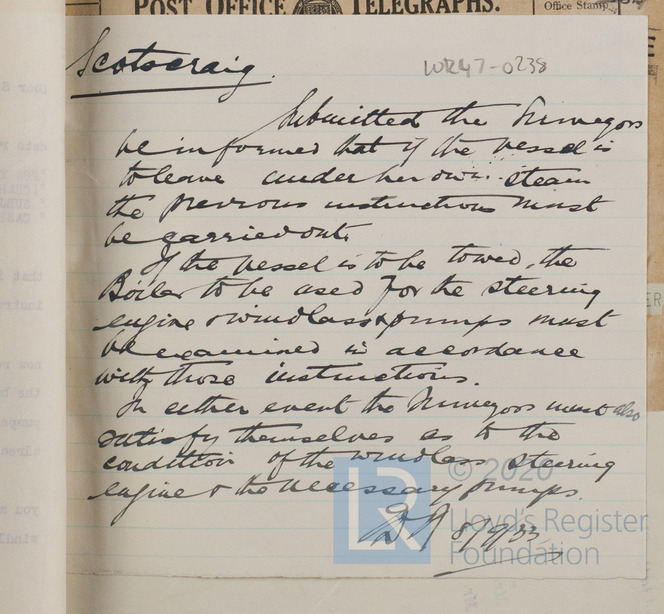 POST OFFICE TELEGRAPHS.
Office Stamp
Scotscraig.
WR47-0238
Submitted the Surveyors
be informed that if the vessel is
to leave under her own steam
the previous instructions must
be carried out.
If the vessel is to be towed, the
Boiler to be used for the steering
engine & windlass & pumps must
be examined in accordance
with those instructions.
In either event the Surveyors must also
satisfy themselves as to the
condition of the windlass steering
engine & the necessary pumps.
8/9/33
LR
© 2020
Lloyd's Register
Foundation